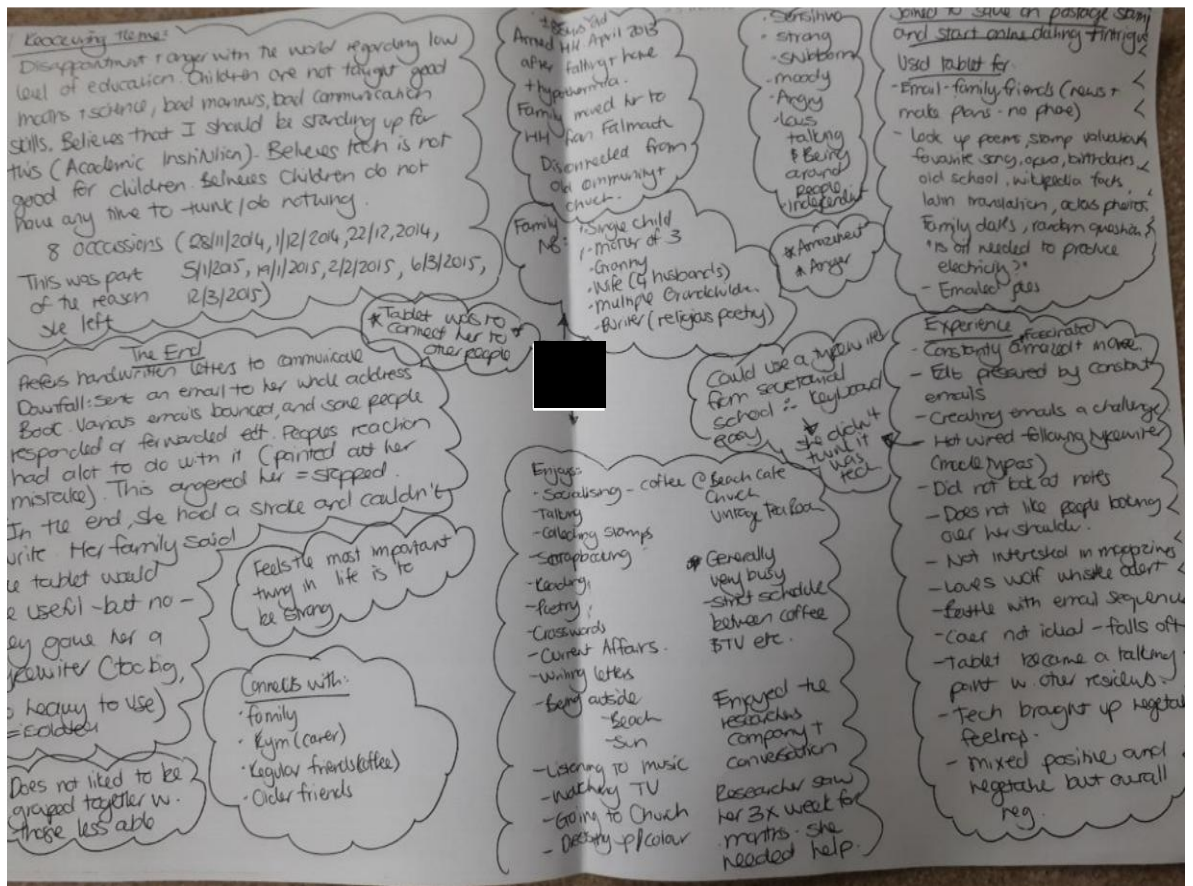 Reoccuring theme:
Disappointment + anger with the world regarding low
level of education. Children are not taught good
maths + science, bad manners, bad communication
skills. Believes that I should be standing up for
this (Academic Institution). Believes tech is not
good for children. Believes Children do not
have any time to think/do nothing.
8 occassions (28/11/2014, 1/12/2014, 22/12,2014,
This was part 5/1/2015, 19/1/2015, 2/2/2015, 6/3/2015,
of the reason 12/3/2015)
she left
* Tablet was to
connect her to
other people
The End
Prefers handwritten letters to communicate
Downfall: Sent an email to her whole address
Book. Various emails bounced, and some people
responded or forwarded ect. Peoples reaction
had alot to do with it (pointed out her
mistake). This angered her = stopped.
In the end, she had a stroke and couldn't
write. Her family said
tablet would
useful - but no -
gave her a
(too big,
heavy to use)
= isolated
Feels the most important
thing in life is to
be strong
Connects with:
· family
· Kym (carer)
· Regular friends (coffee)
· Older friends
Does not liked to be
grouped together w.
those less able
Arrived HH April 2013
after falling + have
hypothermia.
Family moved her to
HH from Falmouth
Disconnected from
old community +
church.
Family
· Single child
· mother of 3
· Granny
· Wife (4 husbands)
· multiple Grandchildren
· Writer (religious poetry)
· Sensitive
· Strong
· Stubborn
· moody
· Angry
· Loves
talking
& Being
around
People
· Independent
* Amazement
* Anger
Could use a typewriter
from secretarial
school ∴ keyboard
easy
she didn't
think it
was
tech
Enjoys:
· Socialising - coffee @ Beach Cafe
Church
Vintage Tea Room
- Talking
- Collecting stamps
- Scrapbooking
- Reading
- Poetry
- Crosswords
- Current Affairs.
- Writing letters
- Being outside
- Beach
- Sun
- Listening to music
- Watching TV
- Going to Church
- p/colour
* Generally
very busy
- strict schedule
between coffee
& TV etc.
Enjoyed the
researchers
company +
conversation
Researcher saw
her 3x week for
months. she
needed help.
Joined to save on postage stamp
and start online dating + intrigue
Used tablet for
- Email - family, friends (news +
make plans - no phone)
- Look up poems, stamp valuations
favourite song, opera, birthdates,
old school, wikipedia facts,
latin translation, actors photos.
Family dates, random questions
"is oil needed to produce
electricity?"
- Emailed jokes
Experience
Fascinated
- Constantly amazed + more.
- Felt pressured by constant
emails
- Creating emails a challenge
- Hot wired - following typewriter
(made typos)
- Did not look at notes
- Does not like people looking
over her shoulder.
- Not interested in magazines
- Loves wolf whistle alert
- Battle with email sequence
- Cover not ideal - falls off
- Tablet became a talking
point w. other residents.
- Tech brought up negative
feelings.
- mixed positive and
negative but overall
neg.